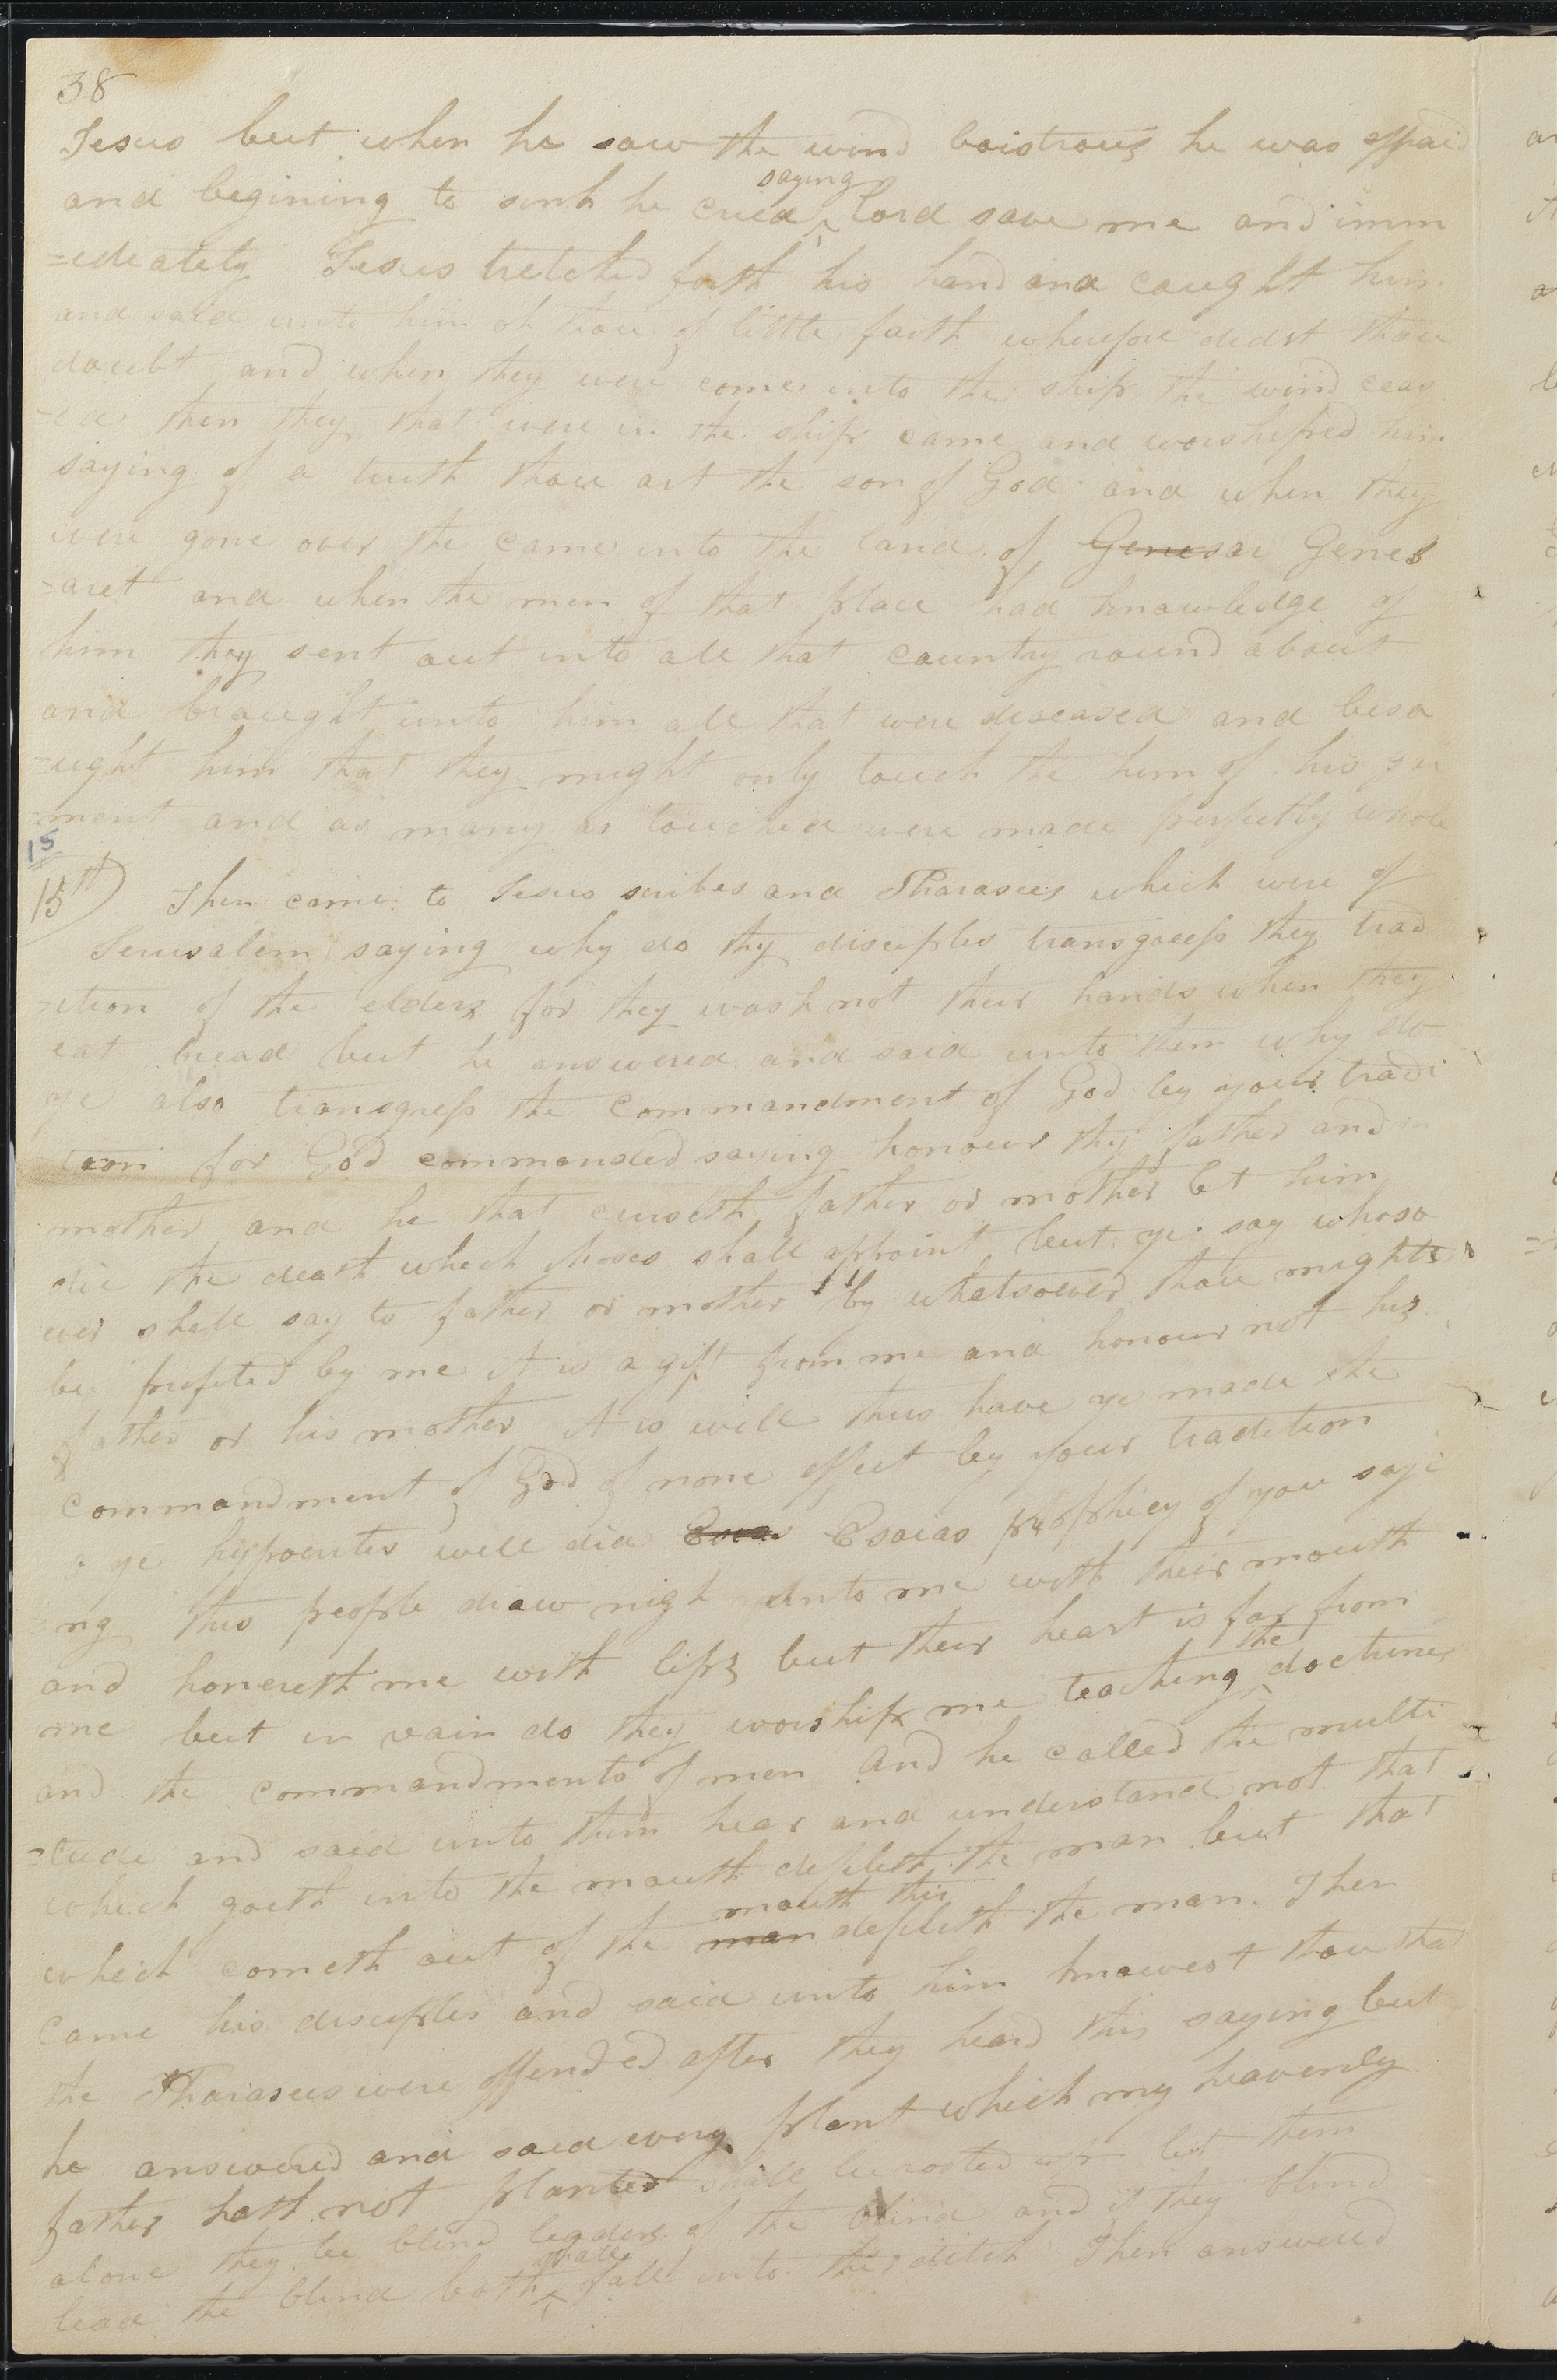 38
Jesus but when he saw the wind boistrous he was affraid
and begining to sink he cried saying lord save me and imm
=ediately Jesus tretched forth his hand and caught him
and said unto him oh thou of little faith wherefore didst thou
doubt and when they were come into the ship the wind ceas
=ed then they that were in the ship came and worshiped him
saying of a truth thou art the son of God and when they
were gone over the came into the land of Genesar Genes
=aret and when the men of that place had knowledge of
him they sent out into all that country round about
and braught unto him all that were diseased and beso
=ught him that they might only touch the him of his gar
=ment and as many as touched were made perfectly whole
15
15th) Then came to Jesus scribes and Pharasies which were of
Jerusalem saying why do thy disciples transgress they trad
=ition of the elders for they wash not their hands when they
eat bread but he answered and said unto them why do
ye also transgress the commandment of God by your tradi
tion for God commanded saying honour thy father and
mother and he that curseth father or mother let him
die the death which Moses shall appoint but ye say whoso
ever shall say to father or mother by whatsoever thou mights
be profited by me it is a gift from me and honour not his
father or his mother it is well thus have ye made the
commandment of God of none effect by your tradition
o ye hypocrites well did Esia Esaias prophicy of you sayi
ng this people draw nigh unto me with their mouth
and honereth me with lips but their heart is far from
me but in vain do they worship me teaching the doctrines
and the commandments of men And he called the multi
=tude and said unto them hear and understand not that
which goeth into the mouth defileth the man but that
which cometh out of the man mouth this defileth the man. Then
came his disciples and said unto him knowest thou that
the Pharasees were offended after they heard this saying but
he answered and said every plant which my heavenly
father hath not planted shall be rooted up let them
alone they be blind leaders of the blind and if they blind
lead the blind both shall fall into the ditch Then answered